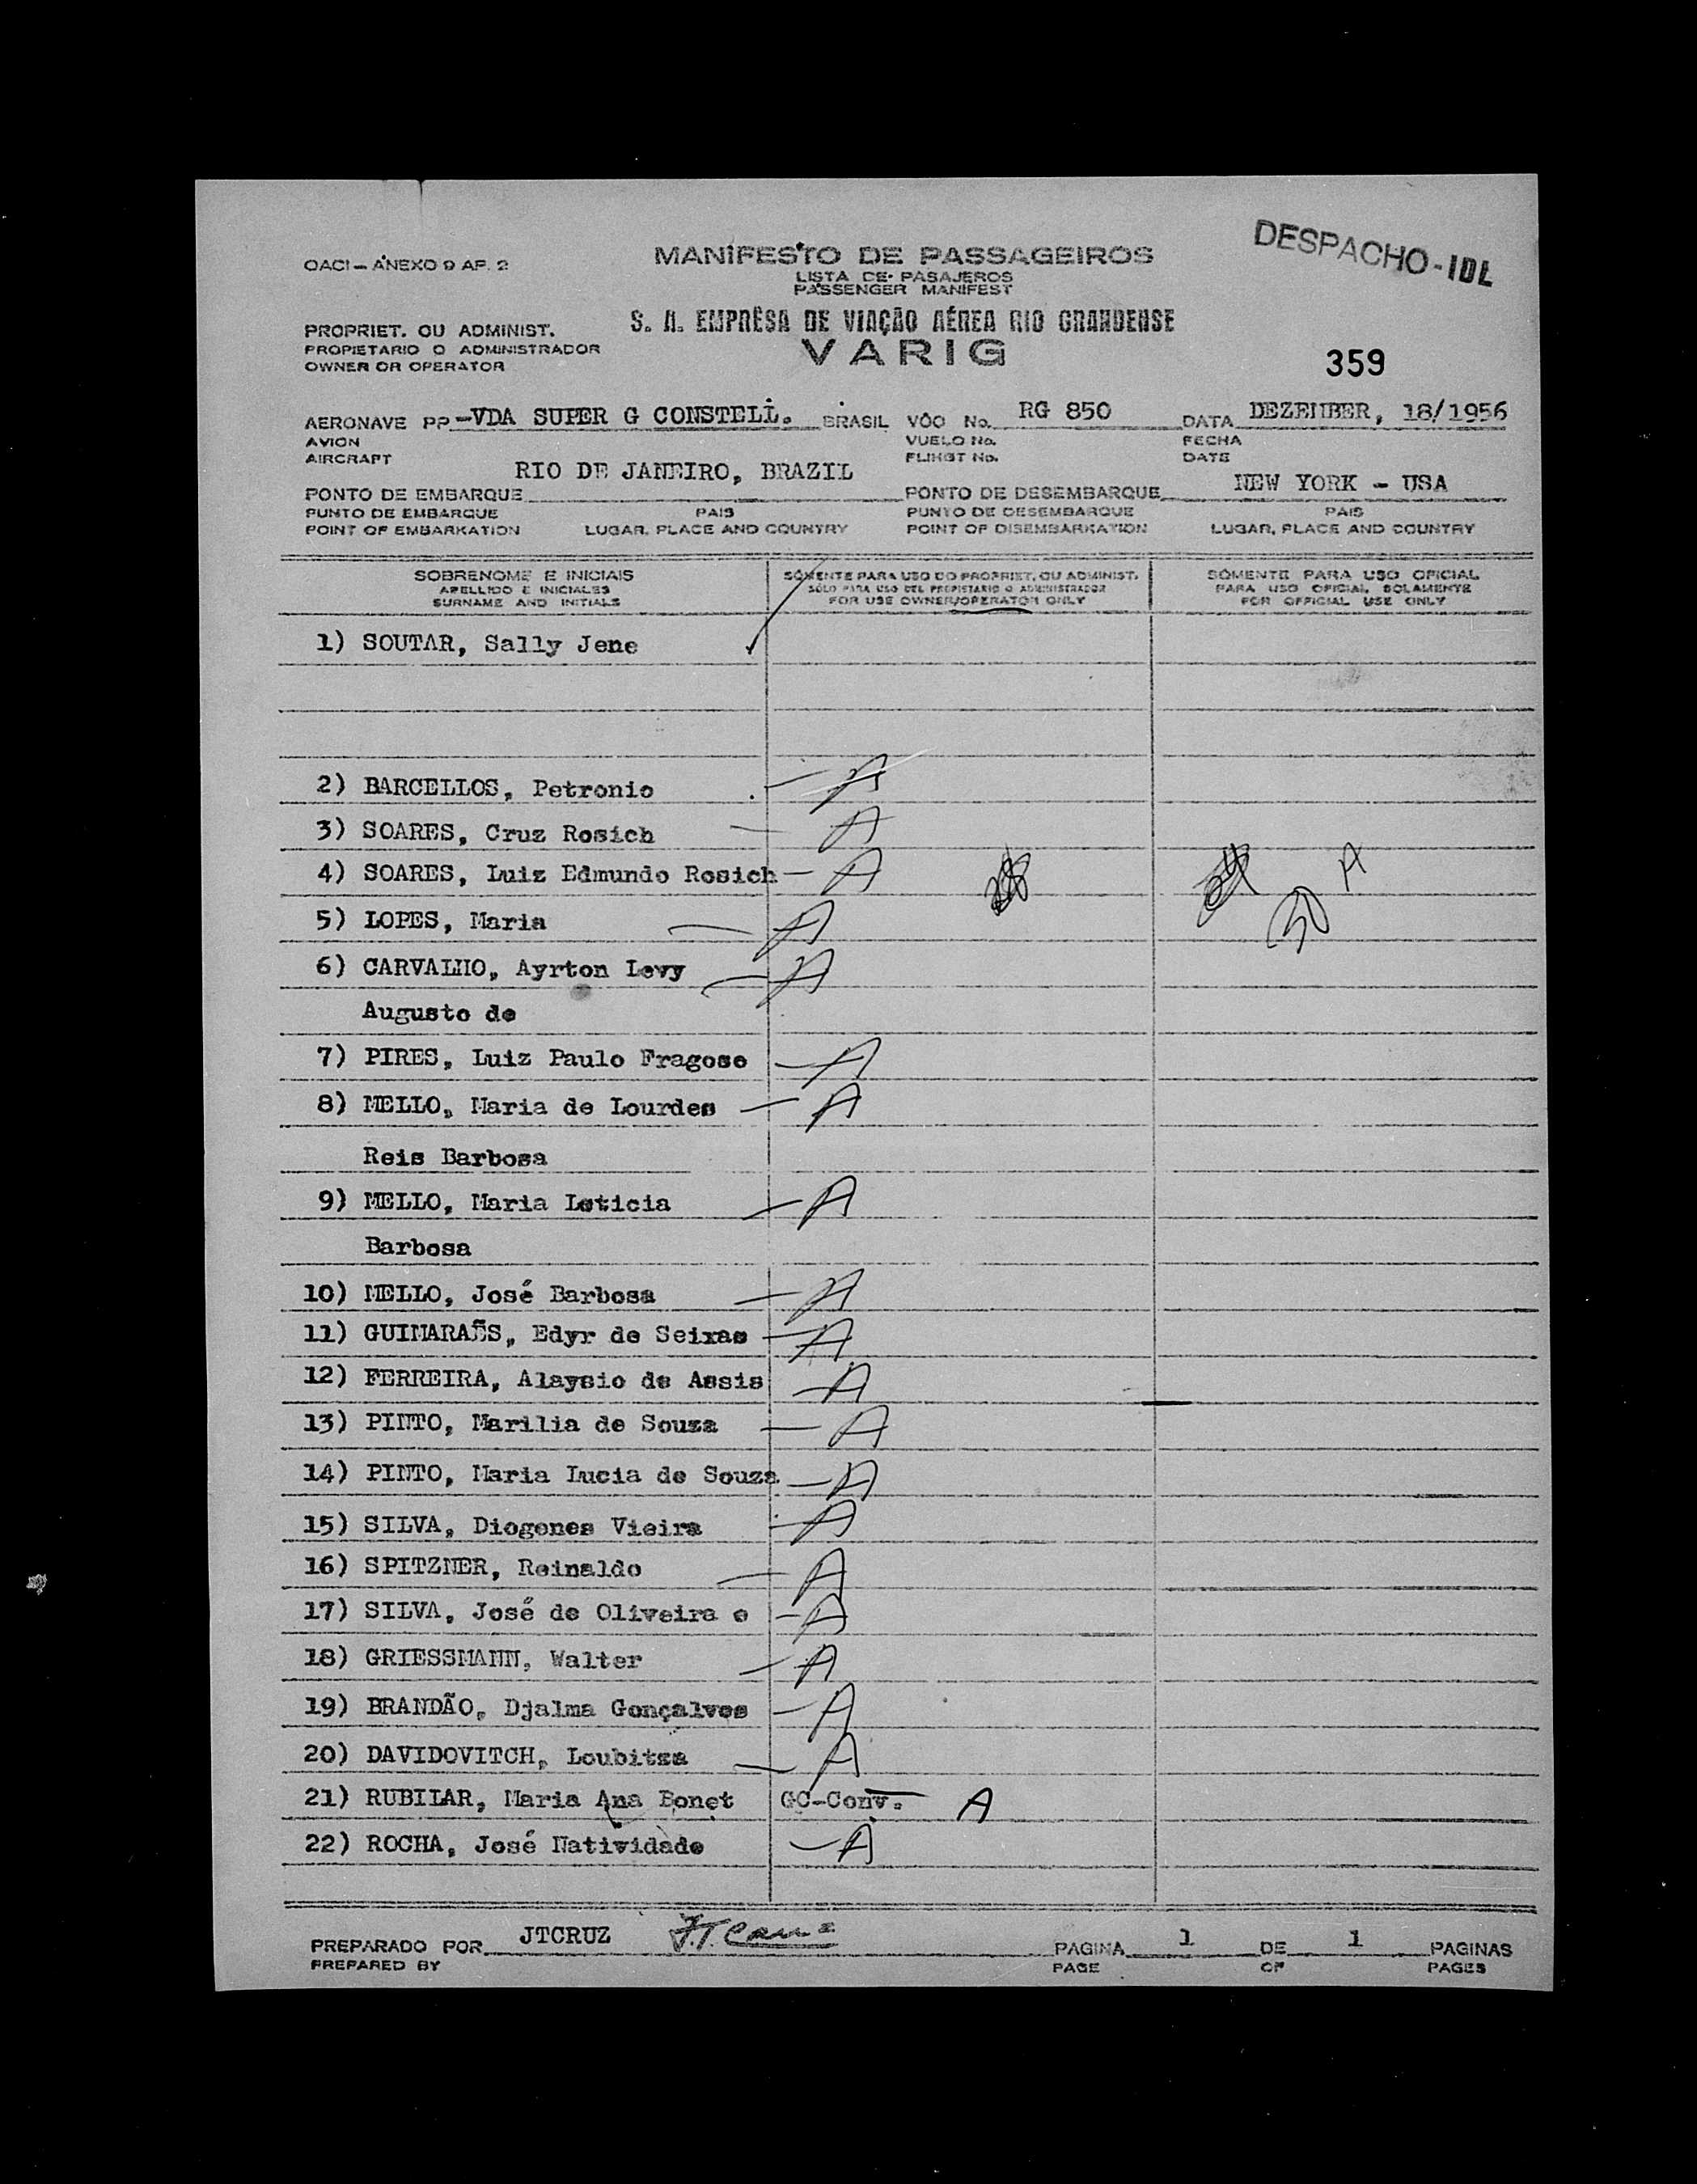 DESPACHO-IDL
OACI - ANEXO 9 AP. 2
MANIFESTO DE PASSAGEIROS
LISTA DE PASAJEROS
PASSENGER MANIFEST
S. A. EMPRÊSA DE VIAÇÃO AÉREA RIO GRANDENSE
VARIG
PROPRIET. OU ADMINIST.
PROPIETARIO O ADMINISTRADOR
OWNER OR OPERATOR
359
AERONAVE PP -VDA SUPER G CONSTELL. BRASIL VÔO No. RG 850 DATA DEZEMBER, 18/1956
AVION VUELO No. FECHA
AIRCRAFT FLIHGT No. DATE
PONTO DE EMBARQUE RIO DE JANEIRO, BRAZIL PONTO DE DESEMBARQUE NEW YORK - USA
PUNTO DE EMBARQUE PAIS PUNTO DE DESEMBARQUE PAIS
POINT OF EMBARKATION LUGAR, PLACE AND COUNTRY POINT OF DISEMBARKATION LUGAR, PLACE AND COUNTRY
SOBRENOME E INICIAIS SÒMENTE PARA USO DO PROPRIET. OU ADMINIST. SÒMENTE PARA USO OFICIAL
APELLIDO E INICIALES SÓLO PARA USO DEL PROPIETARIO O ADMINISTRADOR PARA USO OFICIAL SOLAMENTE
SURNAME AND INITIALS FOR USE OWNER/OPERATOR ONLY FOR OFFICIAL USE ONLY
1) SOUTAR, Sally Jene
2) BARCELLOS, Petronio A
3) SOARES, Cruz Rosich A
4) SOARES, Luiz Edmundo Rosich A A
5) LOPES, Maria A
6) CARVALHO, Ayrton Levy A
Augusto de
7) PIRES, Luiz Paulo Fragoso A
8) MELLO, Maria de Lourdes A
Reis Barbosa
9) MELLO, Maria Leticia A
Barbosa
10) MELLO, José Barbosa A
11) GUIMARAẼS, Edyr de Seixas A
12) FERREIRA, Alaysio de Assis A
13) PINTO, Marilia de Souza A
14) PINTO, Maria Lucia de Souza A
15) SILVA, Diogenes Vieira A
16) SPITZNER, Reinaldo A
17) SILVA, José de Oliveira e A
18) GRIESSMANN, Walter A
19) BRANDÃO, Djalma Gonçalves A
20) DAVIDOVITCH, Loubitza A
21) RUBILAR, Maria Ana Bonet GC-Conv. A
22) ROCHA, José Natividade A
PREPARADO POR JTCRUZ PAGINA 1 DE 1 PAGINAS
PREPARED BY PAGE OF PAGES